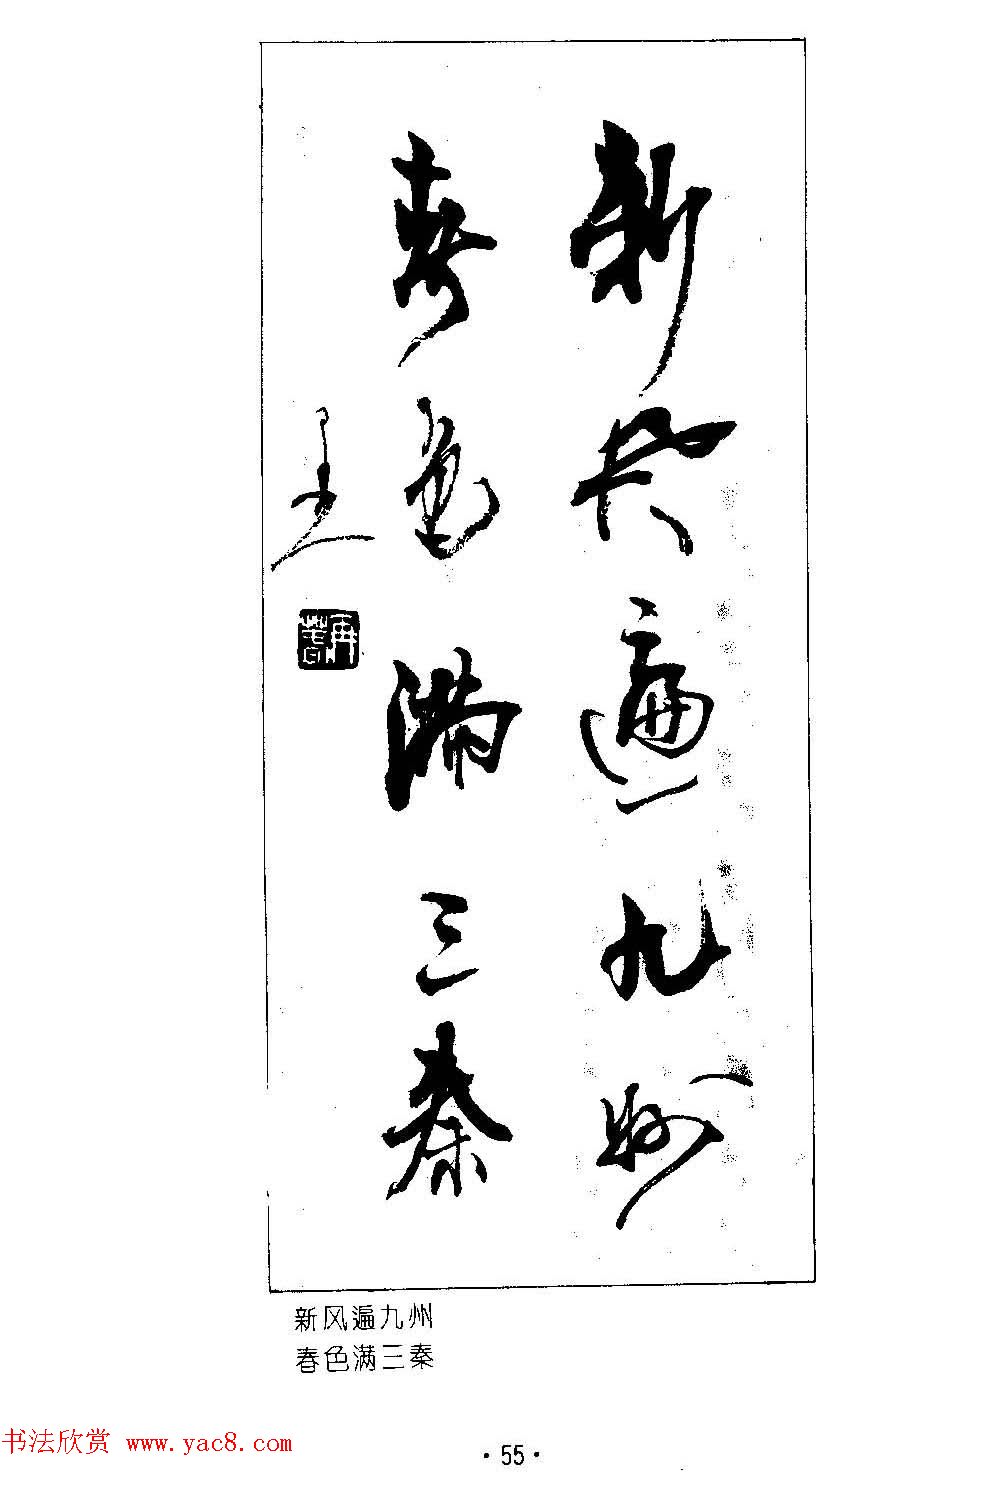 新风遍九州
春色满三秦
新风遍九州
春色满三秦
书法欣赏 www.yac8.com
·55·